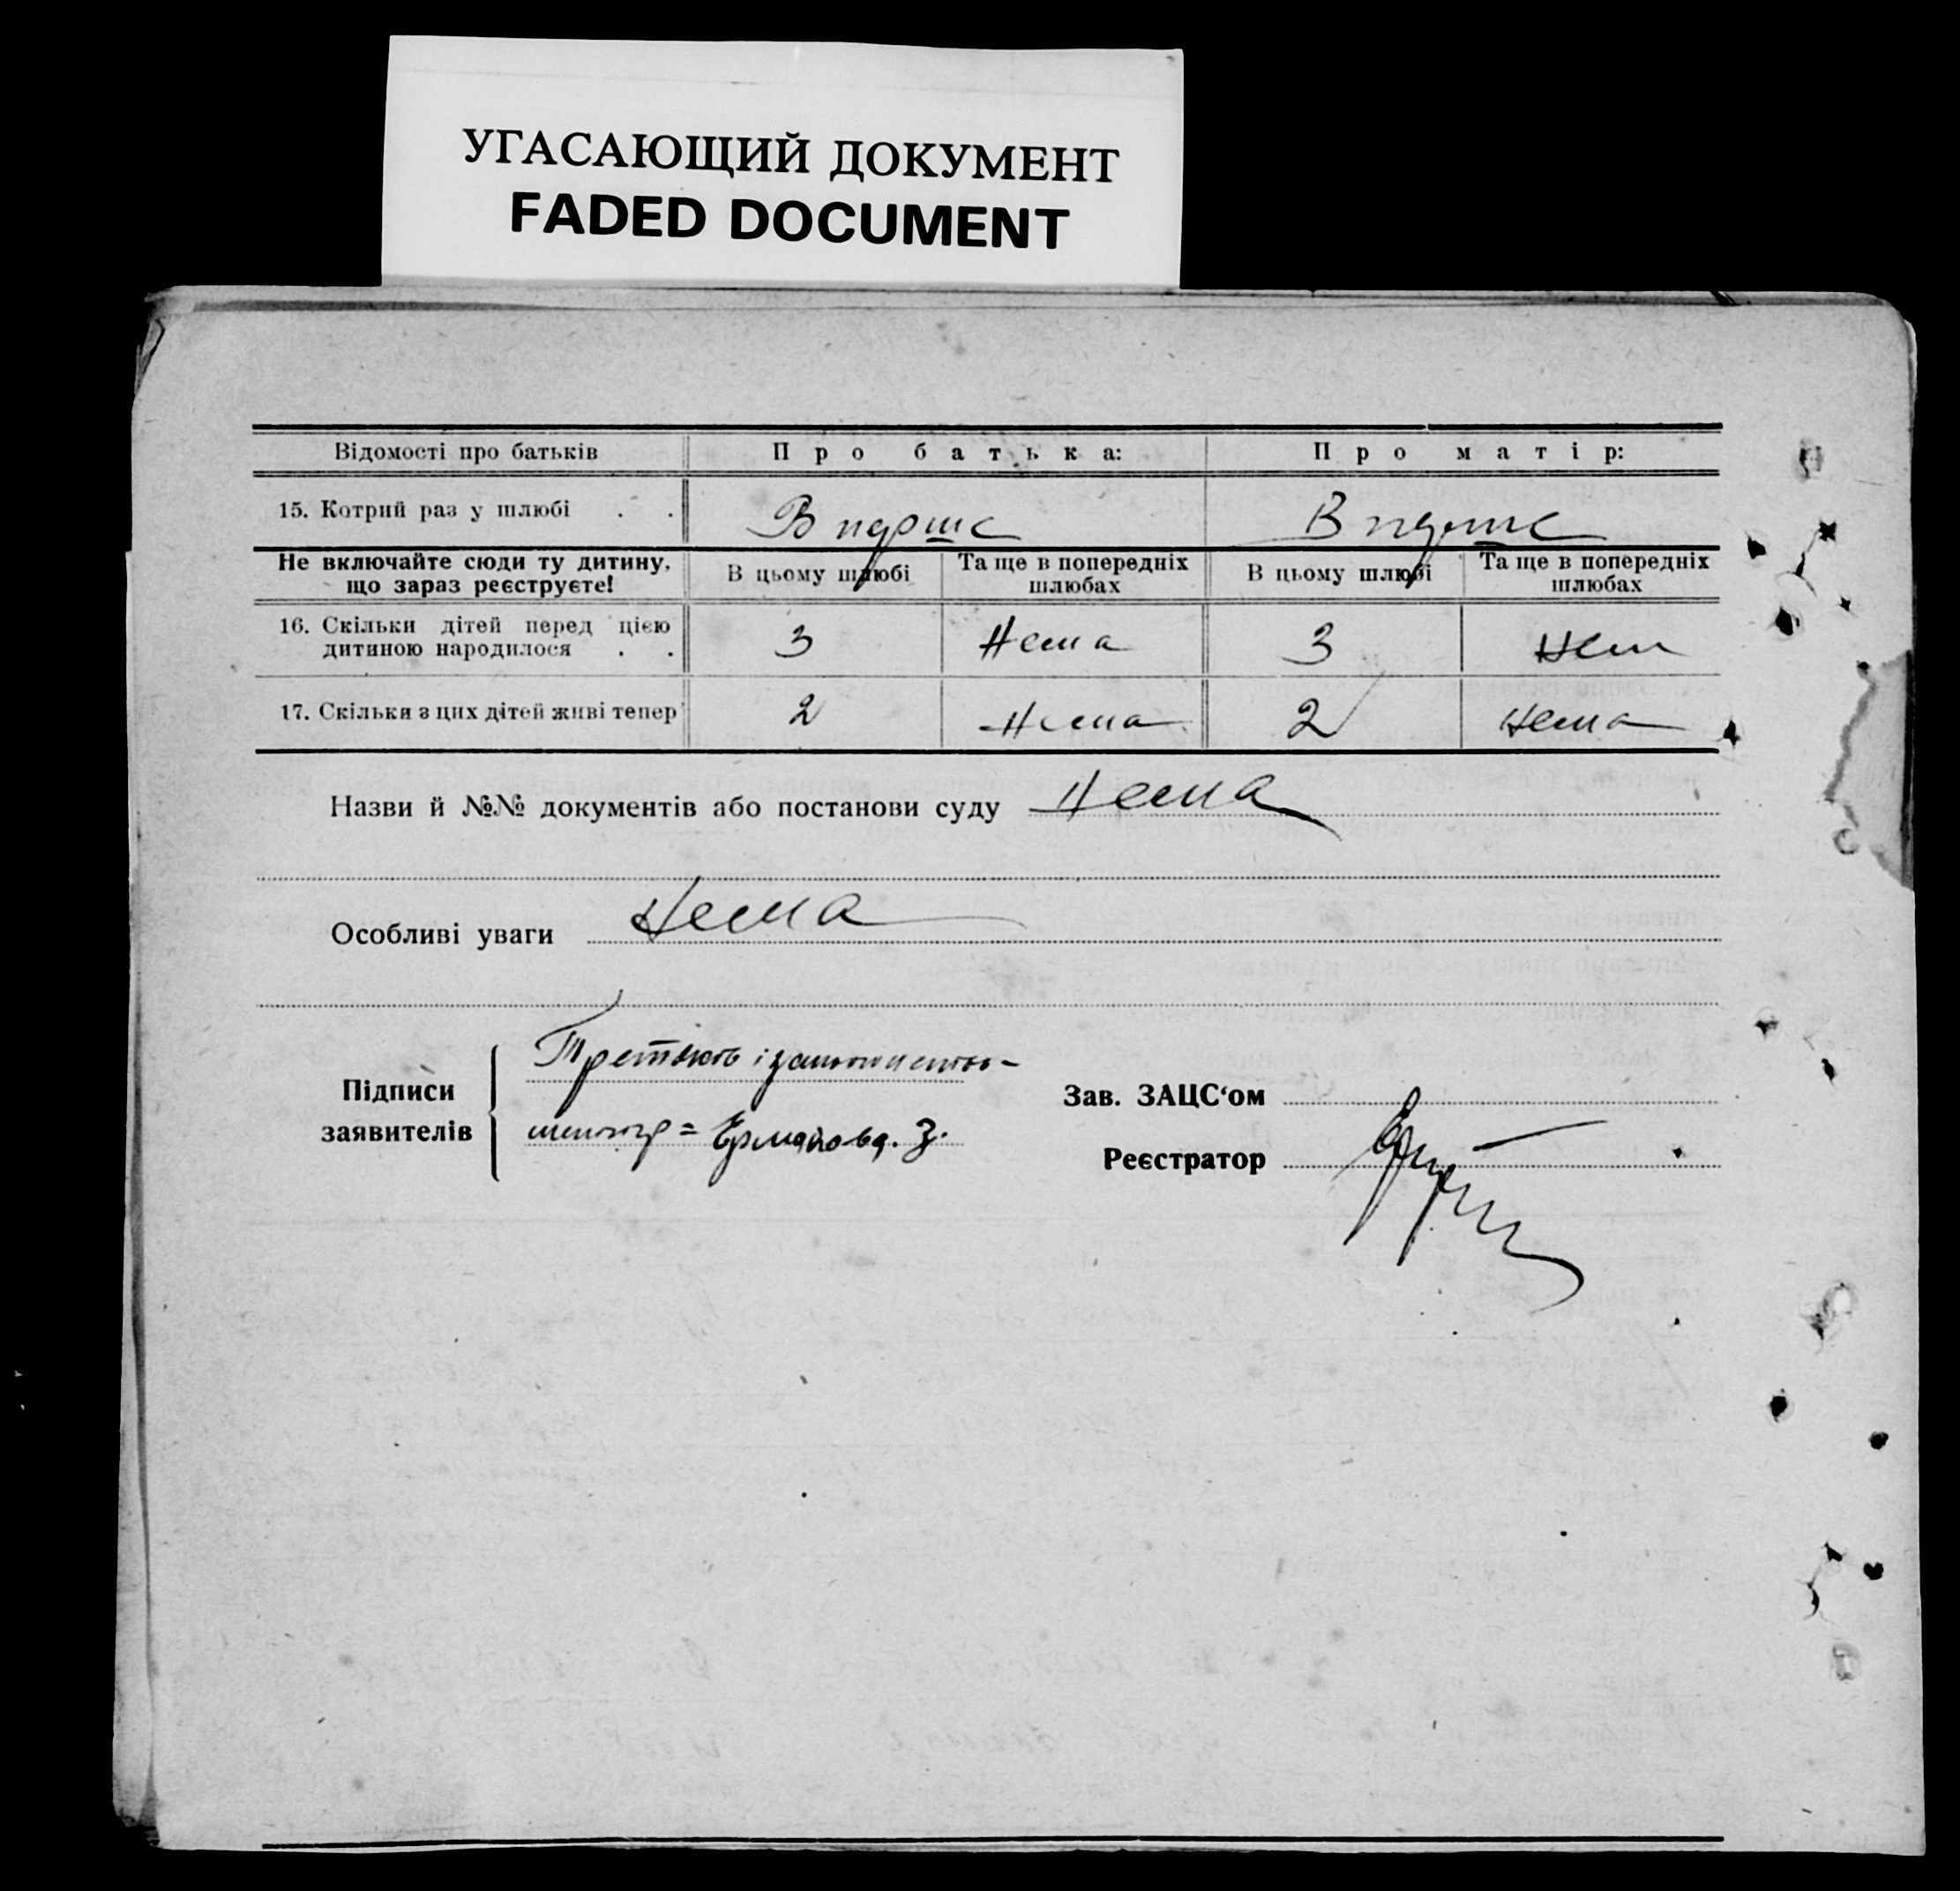 УГАСАЮЩИЙ ДОКУМЕНТ
FADED DOCUMENT
Відомості про батьків Про батька: Про матір:
15. Котрий раз у шлюбі . . Вперше Вперше
Не включайте сюди ту дитину, що зараз реєструєте! В цьому шлюбі Та ще в попередніх шлюбах В цьому шлюбі Та ще в попередніх шлюбах
16. Скільки дітей перед цією
дитиною народилося . . 3 Нема 3 Нем
17. Скільки з цих дітей живі тепер 2 Нема 2 Нема
Назви й №№ документів або постанови суду Нема
Особливі уваги Нема
Підписи
заявителів
Ермакова. З.
Зав. ЗАЦС‘ом
Реєстратор